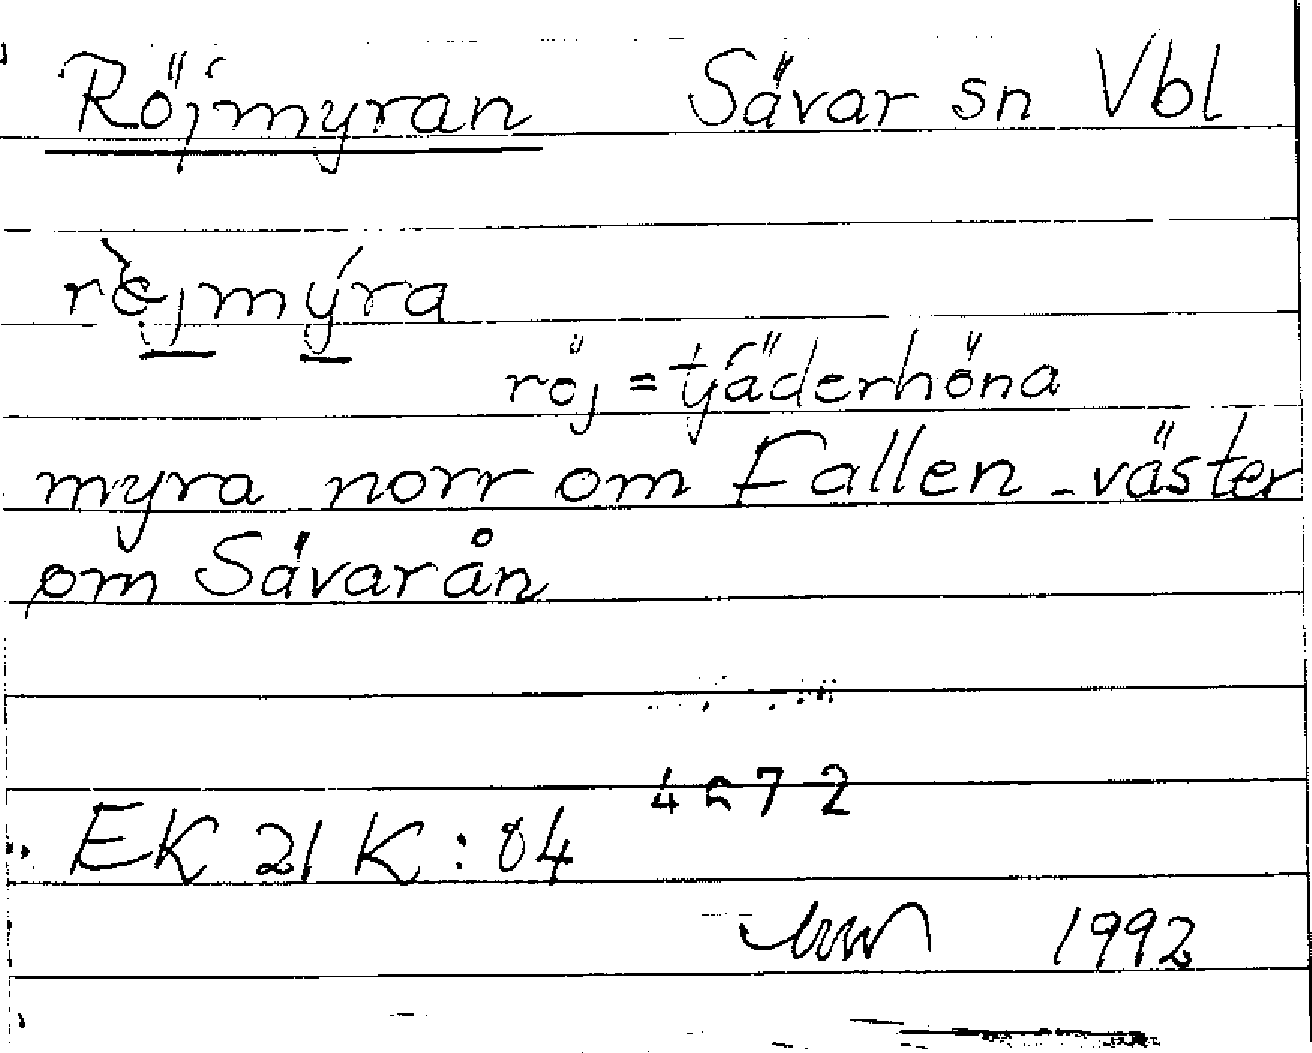 Röjmyran Sävar sn Vbl
rèjmýra
röj = tjäderhöna
myra norr om Fallen - väster
om Sävarån
4672
EK 21 K : 04
1992